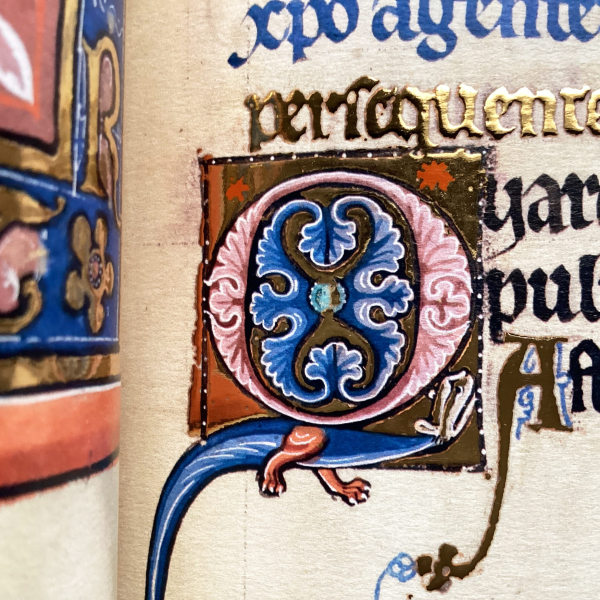 xpo agente
persequentes
Quare
pul
A
R